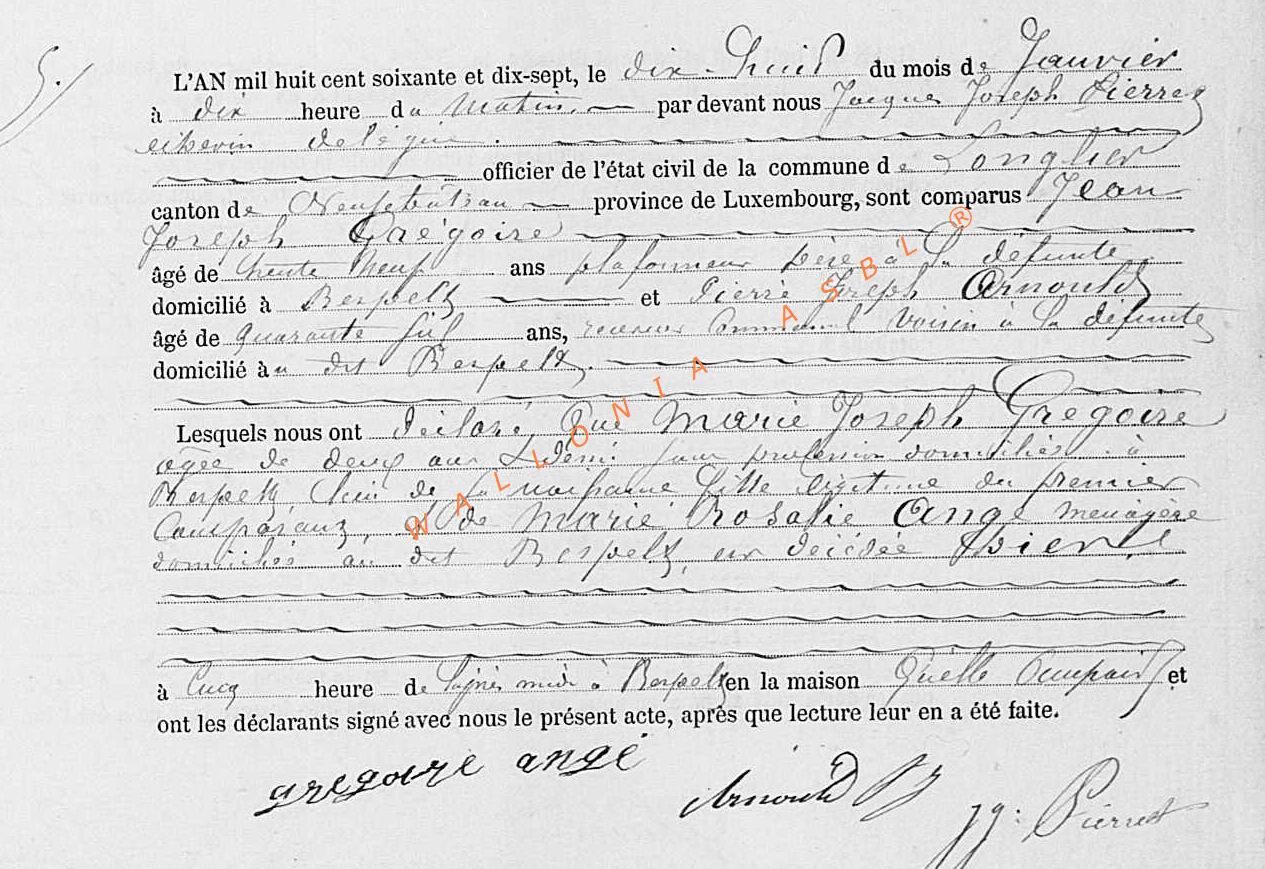 5.
L'AN mil huit cent soixante et dix-sept, le dix-huit du mois de Janvier
à dix heure du matin par devant nous Jacques Joseph Pierret
echevin delégué
officier de l'état civil de la commune de Longlier
canton de Neufchâteau province de Luxembourg, sont comparus Jean
Joseph Grégoire
âgé de trente neuf ans plafonneur père à la défunte
domicilié à Respelt et Pierre Joseph Arnould
âgé de quarante ans, receveur Communal voisin à la défunte
domicilié au dit Respelt.
Lesquels nous ont déclaré Que Marie Joseph Grégoire
agée de deux ans & demi sans profession domiciliée à
Respelt lieu de sa naissance fille légitime du premier
Comparant, et de Marie Rosalie Ange menagère
domiciliée au dit Respelt, est décédée hier
à Cinq heure de l'après midi à Respelt en la maison Qu'elle occupait et
ont les déclarants signé avec nous le présent acte, après que lecture leur en a été faite.
gregoire ange
Arnould PJ
JJ: Pierret
WALLONIA ASBL ®